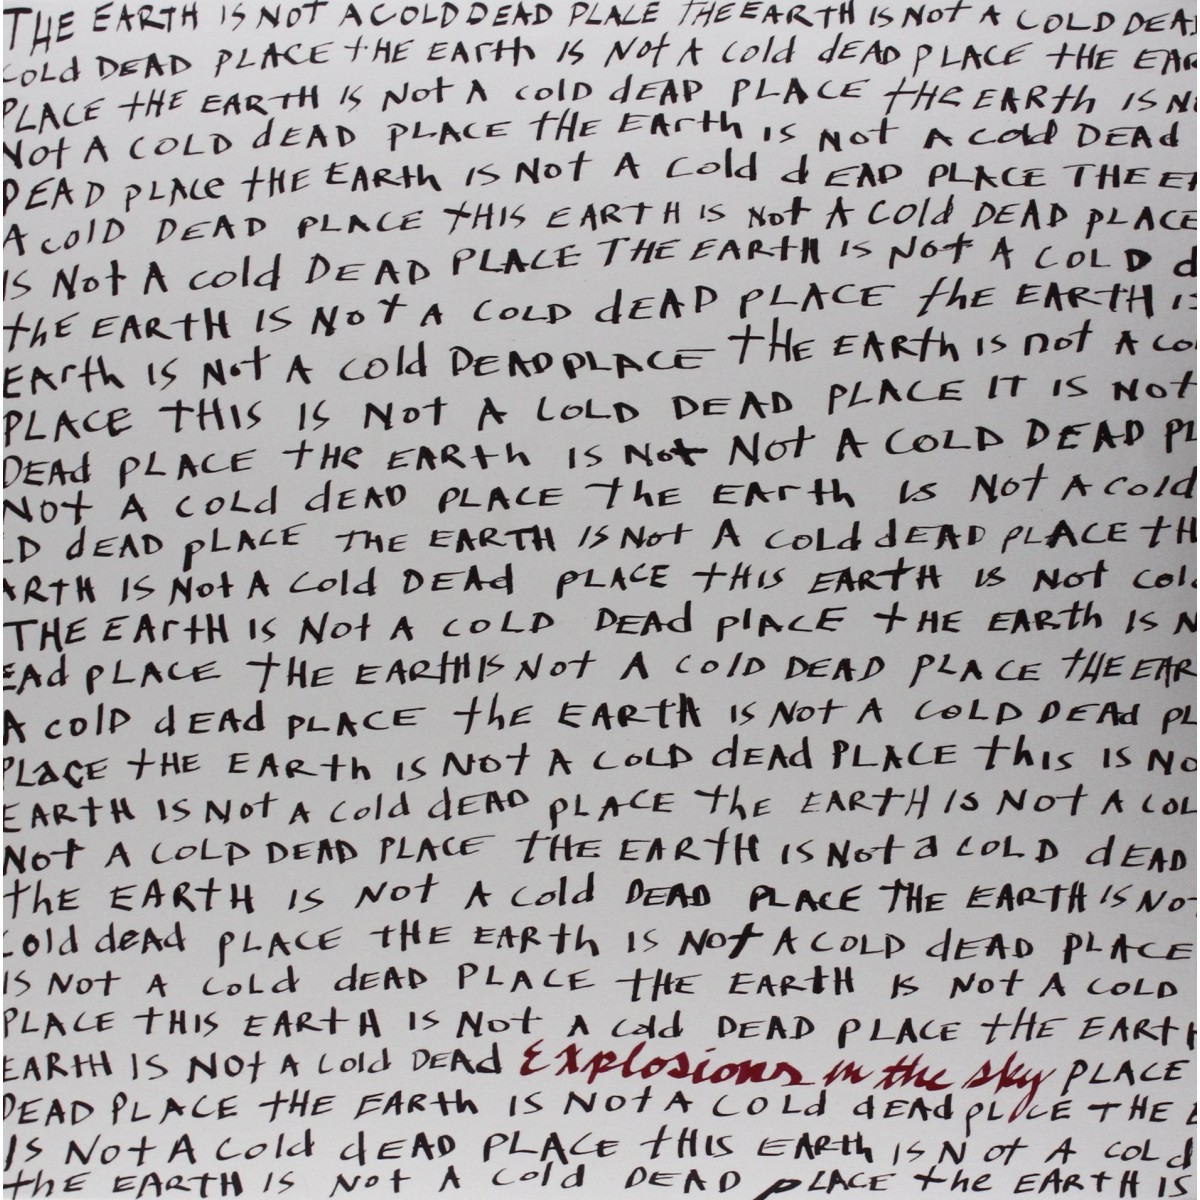 THE EARTH IS NOT A COLD DEAD PLACE THE EARTH IS NOT A COLD DEA
COLD DEAD PLACE tHE EARth IS NOt A Cold dEAD PLACE tHE EAR
PLACE tHE EARTH IS Not A cold dEAD PLACE tHe EARth IS N
Not A COLD dEAD PLACE tHE EArth is Not A Cold DEAd
DEAD pLACe tHE EARth IS Not A Cold dEAD PLACE THE E
A colD DEAD PLACE tHIS EARTH IS Not A Cold DEAD pLACE
IS Not A cold DEAD PLACE THE EARtH IS Not A COLD d
thE EARtH IS NOt A COLD dEAD pLACE the EARtH IS
EArth IS Not A Cold DEAD pLACE tHE EARth IS not A Co
PLACE tHIS IS Not A COLD DEAD PLACE IT IS Not
DEAd pLACE tHe EARth IS Not Not A COLD DEAD PL
Not A Cold dEAD PLACE the EArth is Not A cold
LD dEAD pLACE tHE EARTH IS Not A Cold dEAD pLACE tH
ARTH IS Not A Cold DEAd PLACE tHIS EARtH IS Not Col
THE EArtH IS Not A COLD DEAd plACE tHE EARth IS N
EAd pLACE tHE EARtH IS Not A ColD DEAD PLACE tHE EAR
A colD dEAd pLACE the EARtH IS Not A COLD DEAd pL
PLaCE tHE EARth IS Not A CoLD dEAd PLACE this IS No
EARtH IS Not A Cold dEAD pLACE the EARtH IS Not A COL
Not A COLD DEAD PLACE tHE EARtH IS Not a COLD dEAD
thE EARtH IS Not A Cold DEAD PLACE tHE EARtH IS No
Cold deAd pLACE tHE EARth IS Not A COLD dEAD PLACE
IS Not A Cold dEAD PLACE tHE EARtH IS Not A COLD
PLACE tHIS EARtH IS Not A Cold DEAD PLACE tHE EARtH
EARtH IS NOt A Cold DEAD Explosions in the sky PLACE
DEAD PLACE tHE EARth IS Not A COLd dEAd pLACE tHE E
IS Not A Cold dEAD PLACE tHIS EARth IS Not A COLd
thE EARtH IS Not A Cold DEAD pLACE the EARtH IS